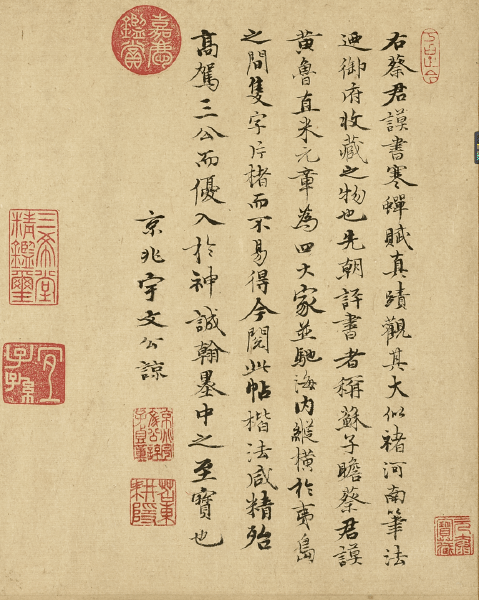 右蔡君謨書寒蟬賦真蹟觀其大似褚河南筆法
迺御府收藏之物也先朝評書者稱蘇子瞻蔡君謨
黃魯直米元章為四大家並馳海內縱橫於夷島
之間隻字片楮而不易得今閱此帖楷法咸精殆
高駕三公而優入於神誠翰墨中之至寶也
京兆宇文公諒
嘉慶鑑賞
三希堂精鑑璽
宜子孫